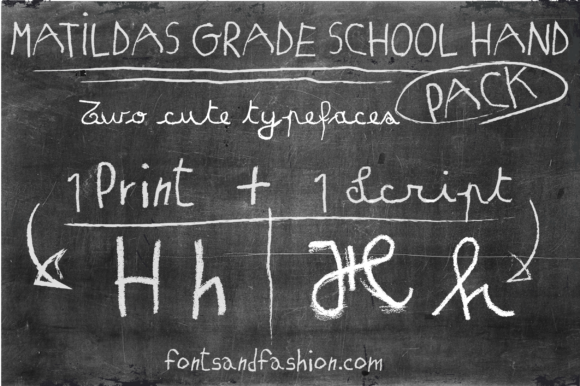 MATILDAS GRADE SCHOOL HAND
PACK
Two cute typefaces
1 Print + 1 Script
H h H h
fontsandfashion.com